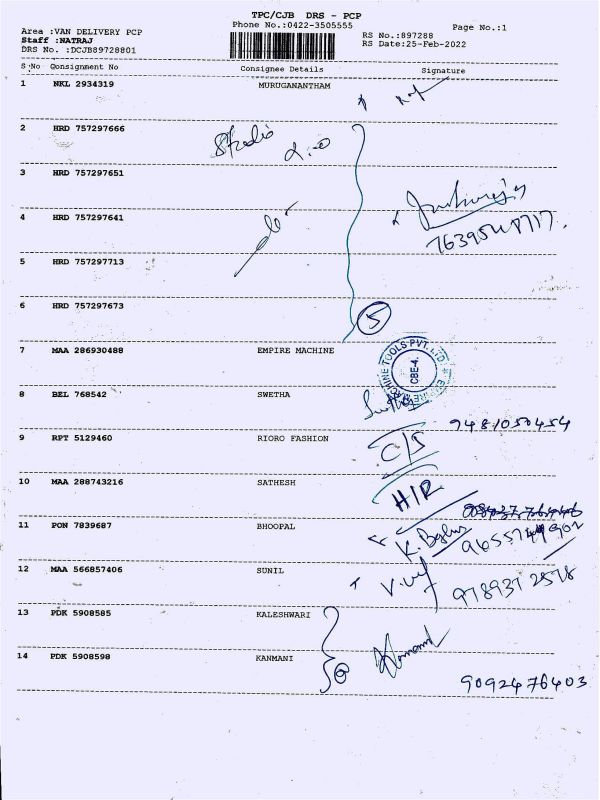 TPC/CJB DRS - PCP
Phone No.:0422-3505555
Page No.:1
Area :VAN DELIVERY PCP
Staff :NATRAJ
DRS No. :DCJB89728801
RS No.:897288
RS Date:25-Feb-2022
S No Consignment No Consignee Details Signature
1 NKL 2934319 MURUGANANTHAM
2 HRD 757297666
3 HRD 757297651
4 HRD 757297641
5 HRD 757297713
6 HRD 757297673
5
7 MAA 286930488 EMPIRE MACHINE
MACHINE TOOLS PVT. LTD
CBE-4.
8 BEL 768542 SWETHA
Swetha
9481050454
9 RPT 5129460 RIORO FASHION
C/S
10 MAA 288743216 SATHESH
H/R
11 PON 7839687 BHOOPAL
12 MAA 566857406 SUNIL
9789372578
13 PDK 5908585 KALESHWARI
14 PDK 5908598 KANMANI
9092476403